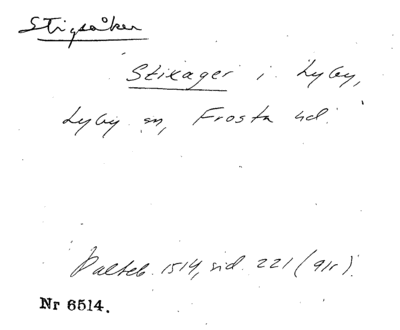 Stigsåker
Stixager i Lyby,
Lyby sn, Frosta hd.
Palteb. 1514, sid. 221 (91r).
Nr 6514.